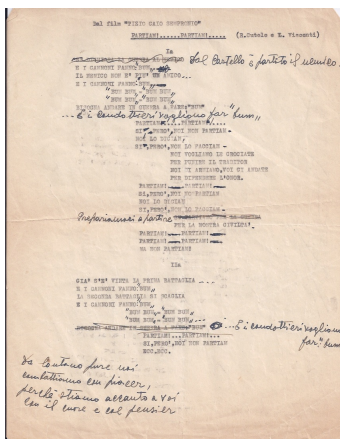 Dal film "TIZIO CAIO SEMPRONIO"
PARTIAMO.....PARTIAMO..... (R.Cutolo e E. Visconti)
Ia
Dal Castello è partito il nemico
E I CANNONI FANNO:BUM,,
IL NEMICO NON E' PIU' UN AMICO...
E I CANNONI FANNO:BUM,,
"BUM BUM,, "BUM BUM,,
"BUM BUM,, "BUM BUM,,
BISOGNA ANDARE IN GUERRA A FARE:"BUM"
...E i condottieri vogliono far "bum"
PARTIAM....PARTIAM....
SI,PERO',NOI NON PARTIAM
NOI LO DICIAM,
SI,PERO',NON LO FACCIAM
NOI VOGLIAMO IN CROCIATE
PER PUNIRE IL TRADITOR
NOI VI AMIAMO,VOI CI AMATE
PER DIFENDERE L'ONOR.
PARTIAMO.....PARTIAMO
SI,PERO',NOI NON PARTIAM
NOI LO DICIAM
SI,PERO',NON LO FACCIAM
Prepariamoci a partire
PER LA NOSTRA CIVILTA'.
PARTIAM....PARTIAM
PARTIAM....PARTIAM
PARTIAM....PARTIAM
MA NON PARTIAM
IIa
GIA' S'E' VINTA LA PRIMA BATTAGLIA ....
E I CANNONI FANNO:"BUM,,
LA SECONDA BATTAGLIA SI SBAGLIA
E I CANNONI FANNO:"BUM,,
"BUM BUM,, "BUM BUM,,
"BUM BUM,, "BUM BUM,,
BISOGNA ANDARE IN GUERRA A FARE:"BUM" ...E i condottieri vogliono
far "bum"
PARTIAM....PARTIAM....
SI,PERO',NOI NON PARTIAM
ECC.ECC.
Da lontano pure noi
combattiamo con piacer,
perché stiamo accanto a voi
con il cuore e col pensier